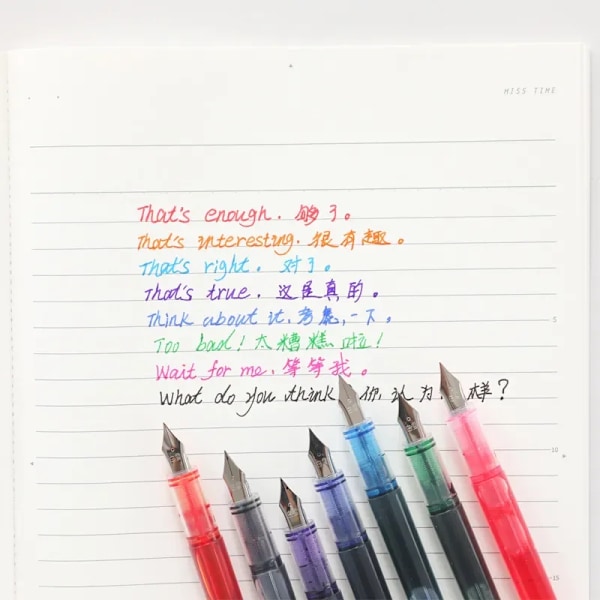 MISS TIME
That's enough. 够了。
That's interesting. 很有趣。
That's right. 对了。
That's true. 这是真的。
Think about it. 考虑一下。
5
Too bad! 太糟糕啦!
Wait for me. 等等我。
What do you think 你认为 样?
10
15